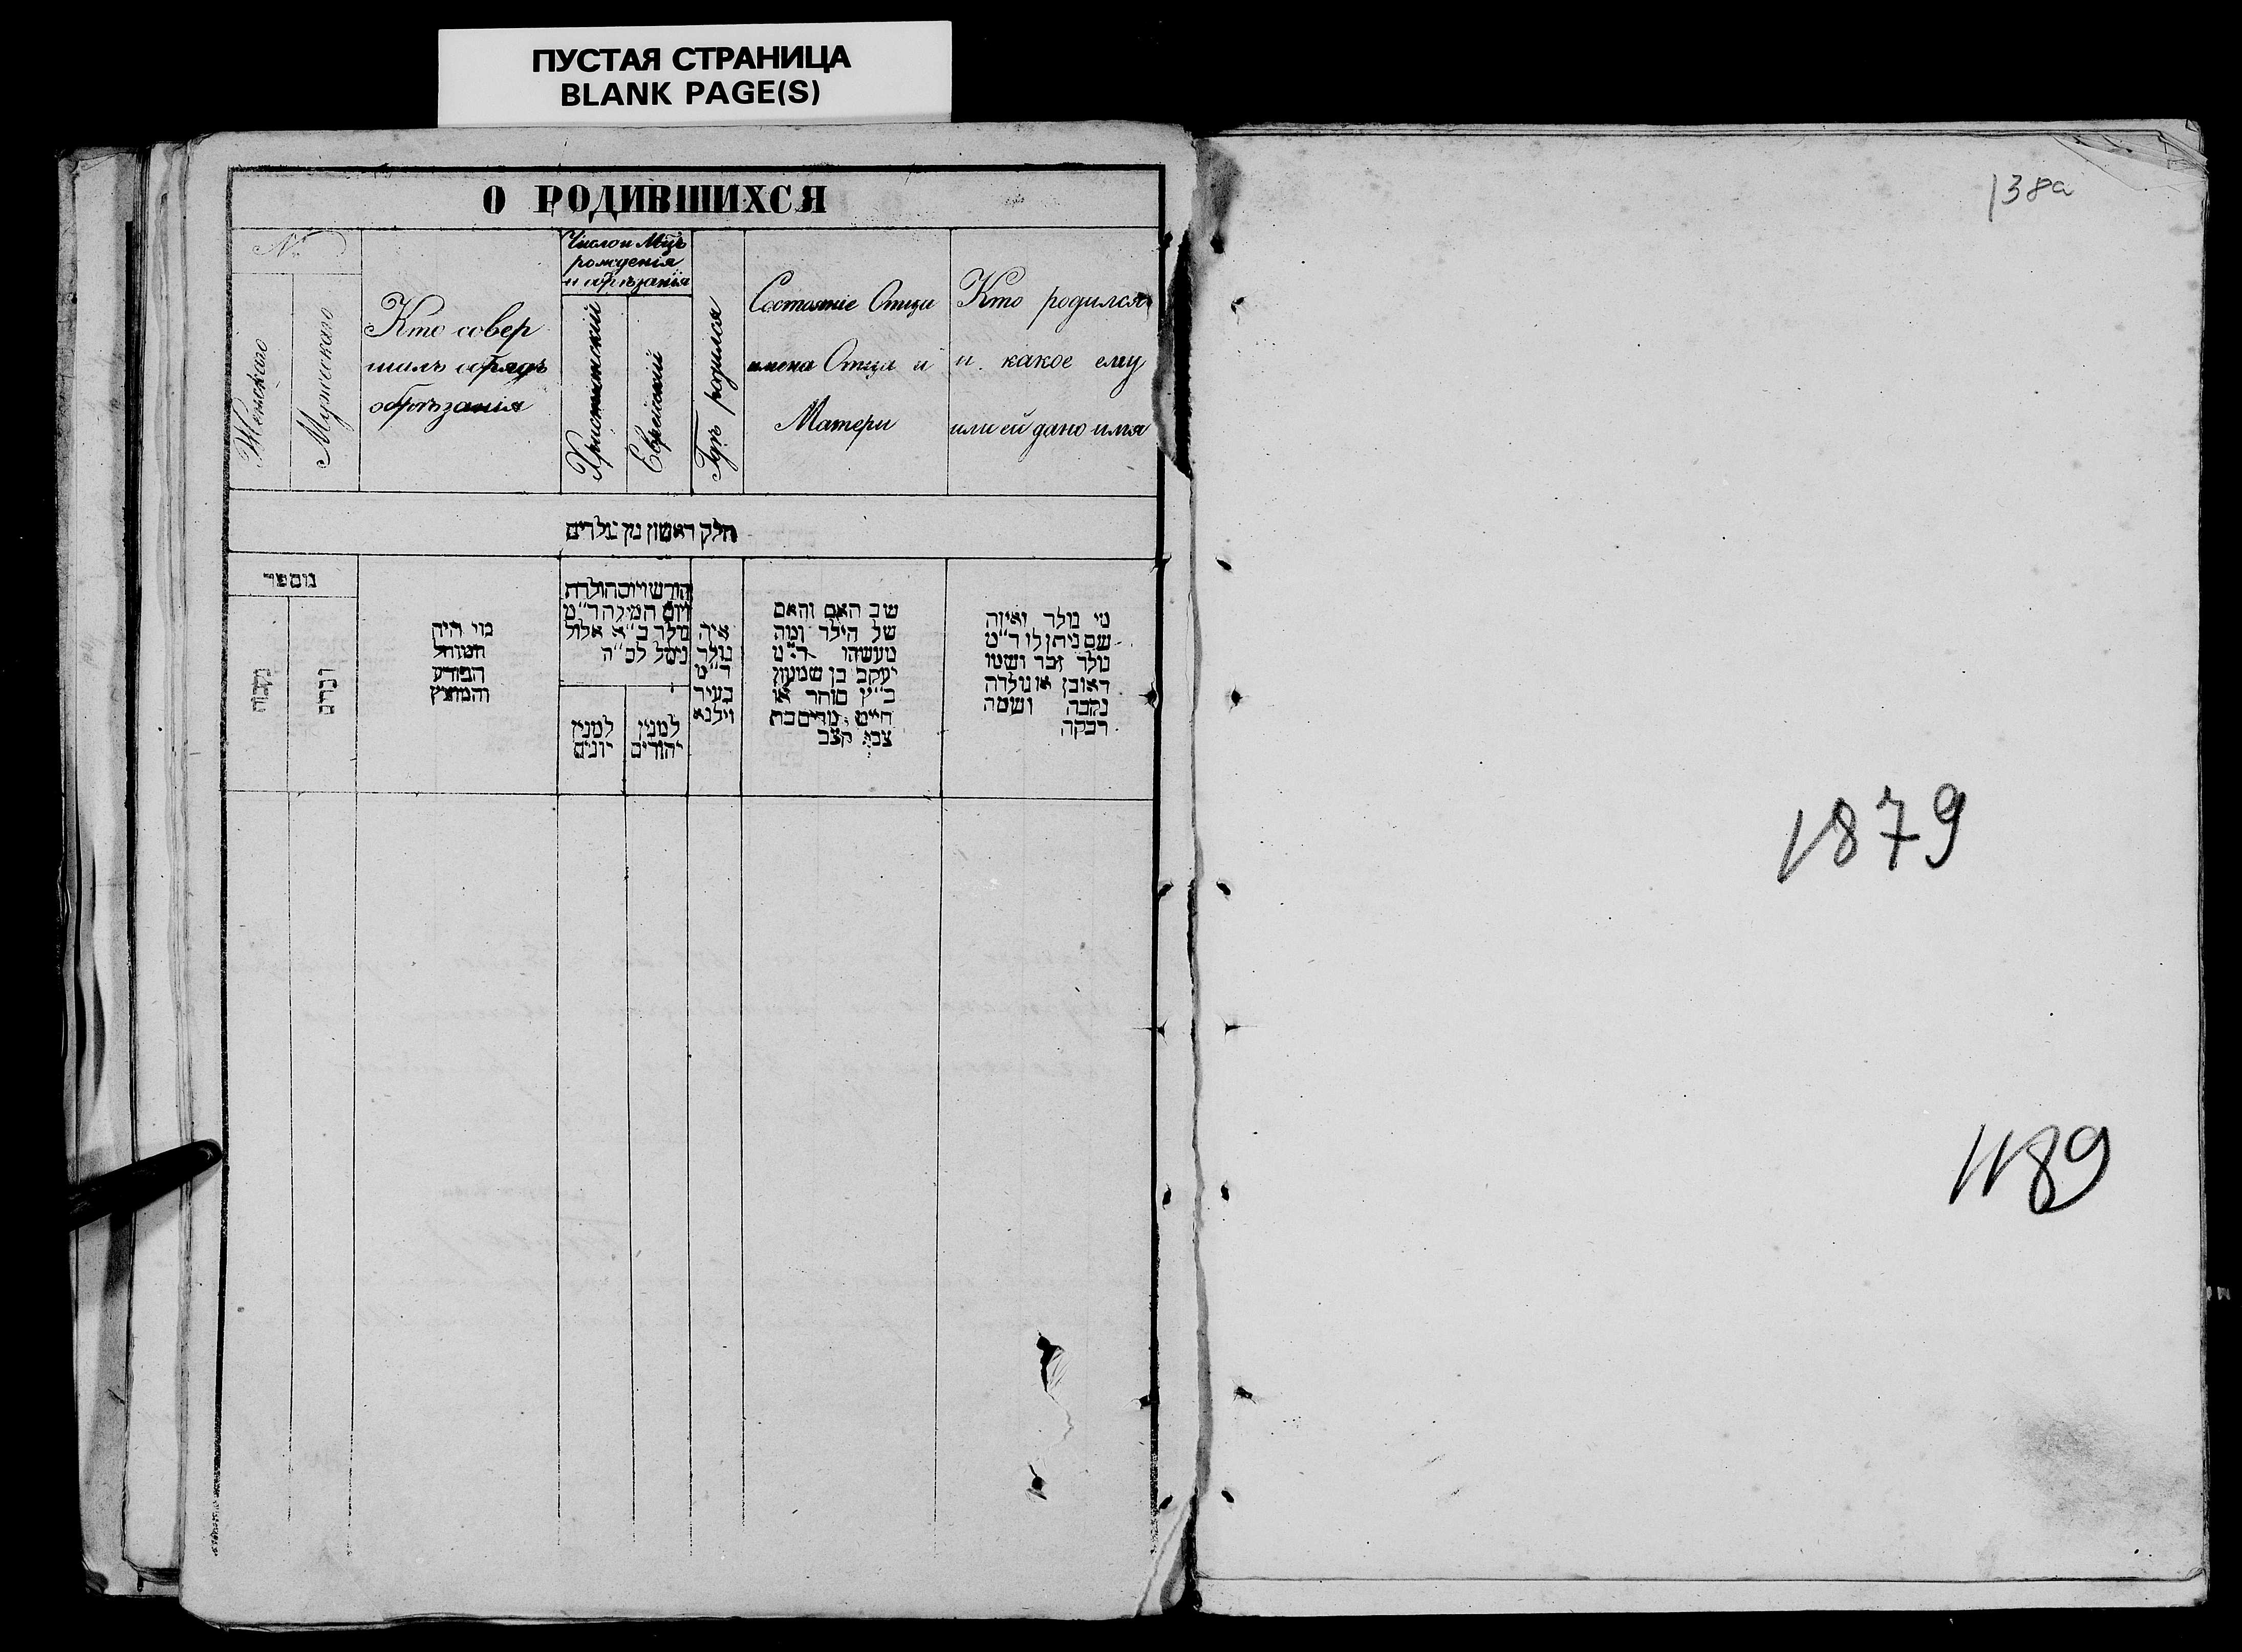 ПУСТАЯ СТРАНИЦА
BLANK PAGE(S)
О РОДИВШИХСЯ
№
Женскаго
Мужескаго
Кто совер
шалъ обрядъ
обрѣзанія
Число и Мцъ
рожденія
и обрѣзанія
Христіянскій
Еврейскій
Гдѣ родился
Состояніе Отца
имена Отца и
Матери
Кто родился
и какое ему
или ей дано имя
חלק ראשון מן נולדים
מספר
נקבות
זכרים
מי היה
המוהל
הפורע
והמוצץ
חודש ויום הולדת
ויום המילה ד״מ
נולד כ״א אלול
נימל לכ״ה
למנין
יונים
למנין
יהודים
איה
נולד
ד״מ
בעיר
וילנא
שם האב והאם
של הילד ומה
מעשהו ד״מ
יעקב בן שמעון
כ״ץ סוחר או
חייט מרים בת
צבי קצב
מי נולד ואיזה
שם ניתן לו ד״מ
נולד זכר ושמו
ראובן או נולדה
נקבה ושמה
רבקה
138а
1879
1189